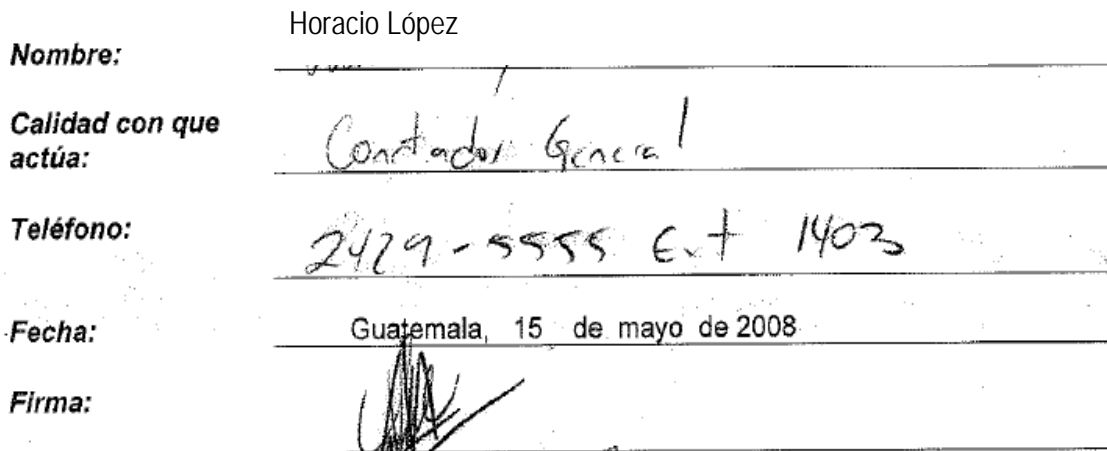 Horacio López
Nombre:
Calidad con que
actúa:
Contador General
Teléfono:
2429-5555 Ext 1403
Fecha:
Guatemala, 15 de mayo de 2008
Firma: